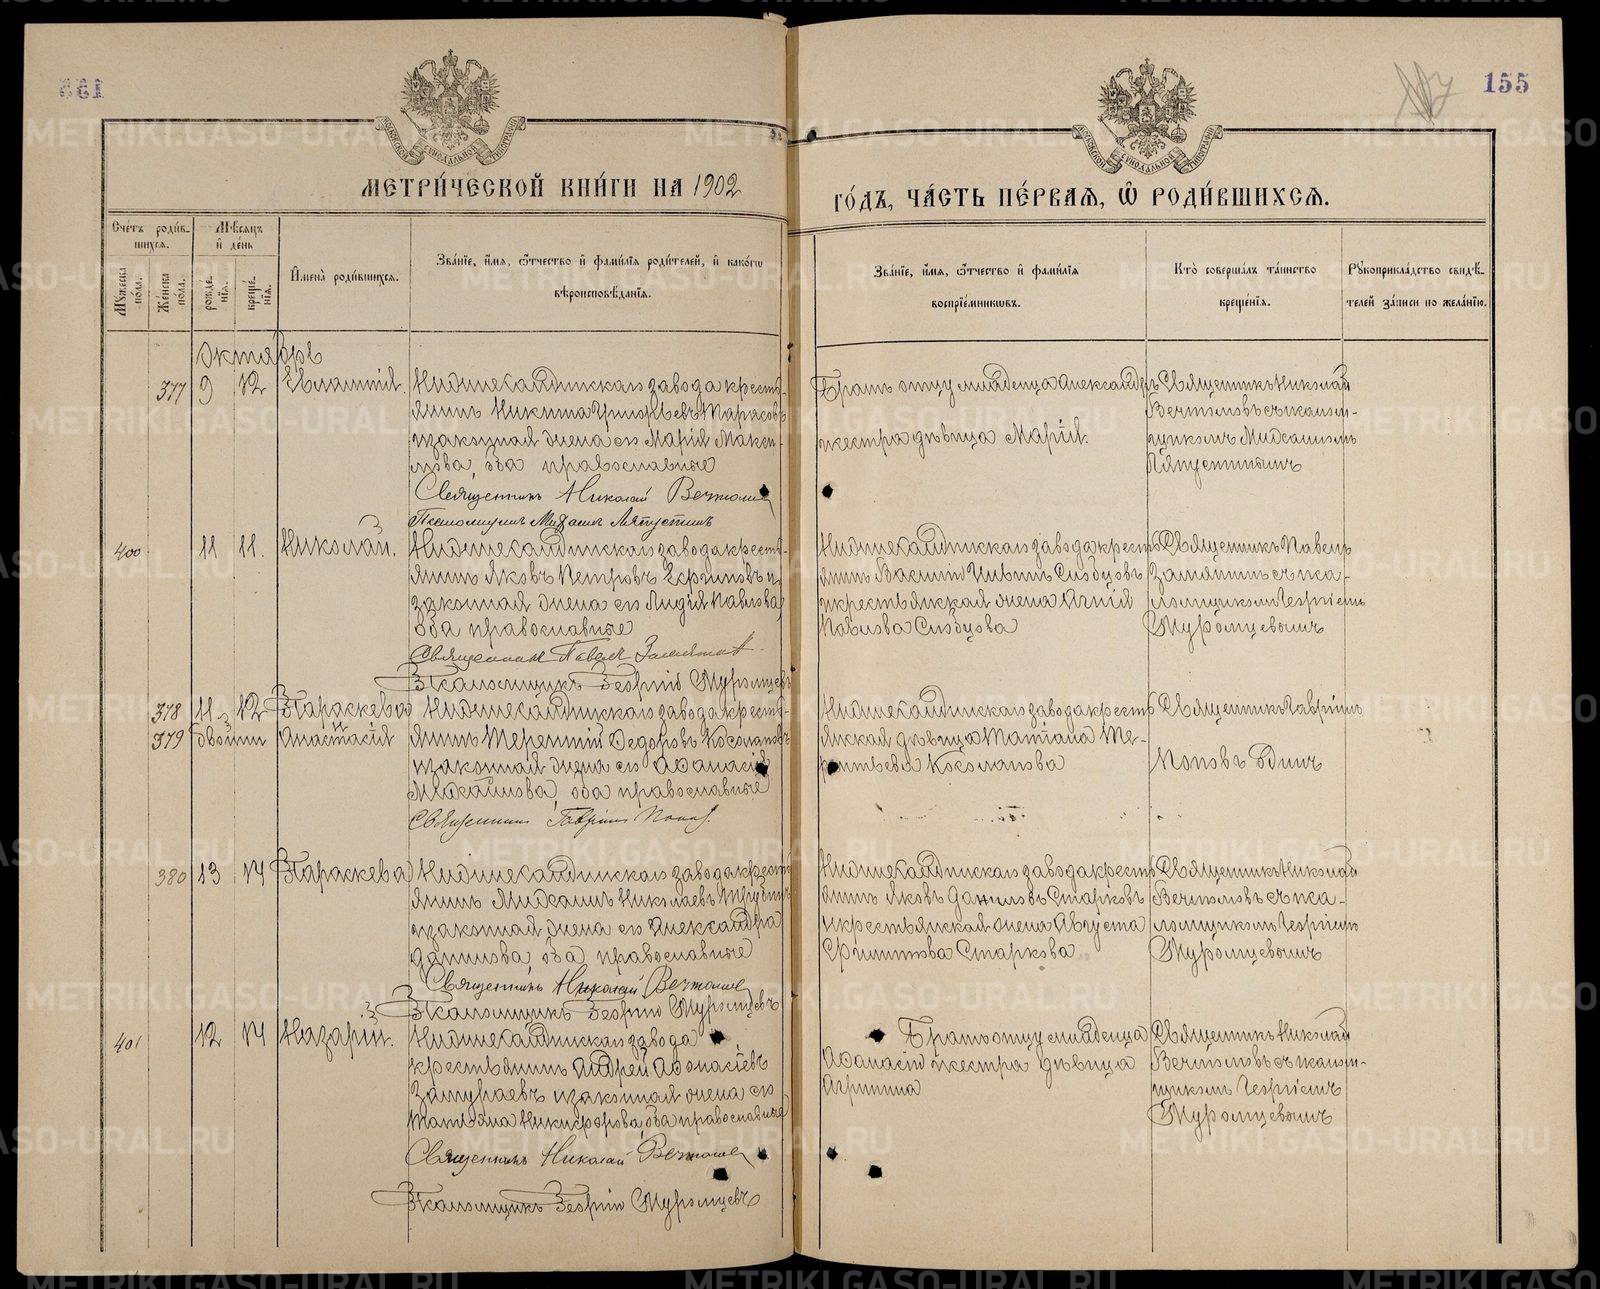 155
МЕТРИ́ЧЕСКОЙ КНИ́ГИ НА 1902
ГО́ДЪ, ЧА́СТЬ ПЕ́РВАЯ, Ѽ РОДИ́ВШИХСЯ.
Сче́тъ роди́в-
шихся.
Му́жеска пола.
Же́нска пола.
Мѣ́сяцъ и҆ де́нь
рожде́-нїя.
креще́-нїя.
И҆мена̀ роди́вшихся.
Зва́нїе, и҆́мя, ѻ҆́тчество и҆ фами́лїя роди́телей, и҆ како́гѡ
вѣроисповѣ́данїя.
Зва́нїе, и҆́мя, ѻ҆́тчество и҆ фами́лїя
воспрїе́мникѡвъ.
Кто̀ соверша́лъ та́инство
креще́нїя.
Рукоприкла́дство свидѣ́-
телей за́писи по жела́нїю.
Октябрь
377 9 12 Евлампія. Нижнесалдинскаго завода кресть-
янинъ Никита Григорьевъ Тарасовъ
и законная жена его Марія Макси-
мова, оба православные
Священникъ Николай
Псаломщикъ Михаилъ Ляпустинъ
Братъ отцу младенца Александръ
и сестра дѣвица Марія.
Священникъ Николай
съ псалом-
щикомъ Михаиломъ
Ляпустинымъ
400 11 11. Николай. Нижнесалдинскаго завода кресть-
янинъ Яковъ Петровъ и
законная жена его Лидія Павлова,
оба православные
Священникъ Павелъ
Псаломщикъ Георгій Муромцевъ
Нижнесалдинскаго завода кресть-
янинъ Василій
и крестьянская жена Агнія
Павлова
Священникъ Павелъ
съ пса-
ломщикомъ Георгіемъ
Муромцевымъ
378 11 12 Параскева Нижнесалдинскаго завода кресть-
379 двойни Анастасія янинъ Терентій Федоровъ Косолаповъ
и законная жена его Афанасія
Михайлова, оба православные
Священникъ Гавріилъ Поповъ.
Нижнесалдинскаго завода кресть-
янская дѣвица Татіана Те-
рентьева Косолапова
Священникъ Гавріилъ
Поповъ Одинъ
380 13 14 Параскева Нижнесалдинскаго завода кресть-
янинъ Михаилъ Николаевъ
и законная жена его Александра
Данилова, оба православные
Священникъ Николай
Псаломщикъ Георгій Муромцевъ
Нижнесалдинскаго завода кресть-
янинъ Яковъ Даниловъ Старковъ
и крестьянская жена Августа
Филиппова Старкова
Священникъ Николай
съ пса-
ломщикомъ Георгіемъ
Муромцевымъ
401 12 14 Назарій. Нижнесалдинскаго завода
крестьянинъ Андрей Афонасіевъ
Замураевъ и законная жена его
Татіана Никифорова, оба православные
Священникъ Николай
Псаломщикъ Георгій Муромцевъ
Братъ отцу младенца
Афанасій и сестра дѣвица
Агриппина
Священникъ Николай
съ псалом-
щикомъ Георгіемъ
Муромцевымъ
METRIKI.GASO-URAL.RU